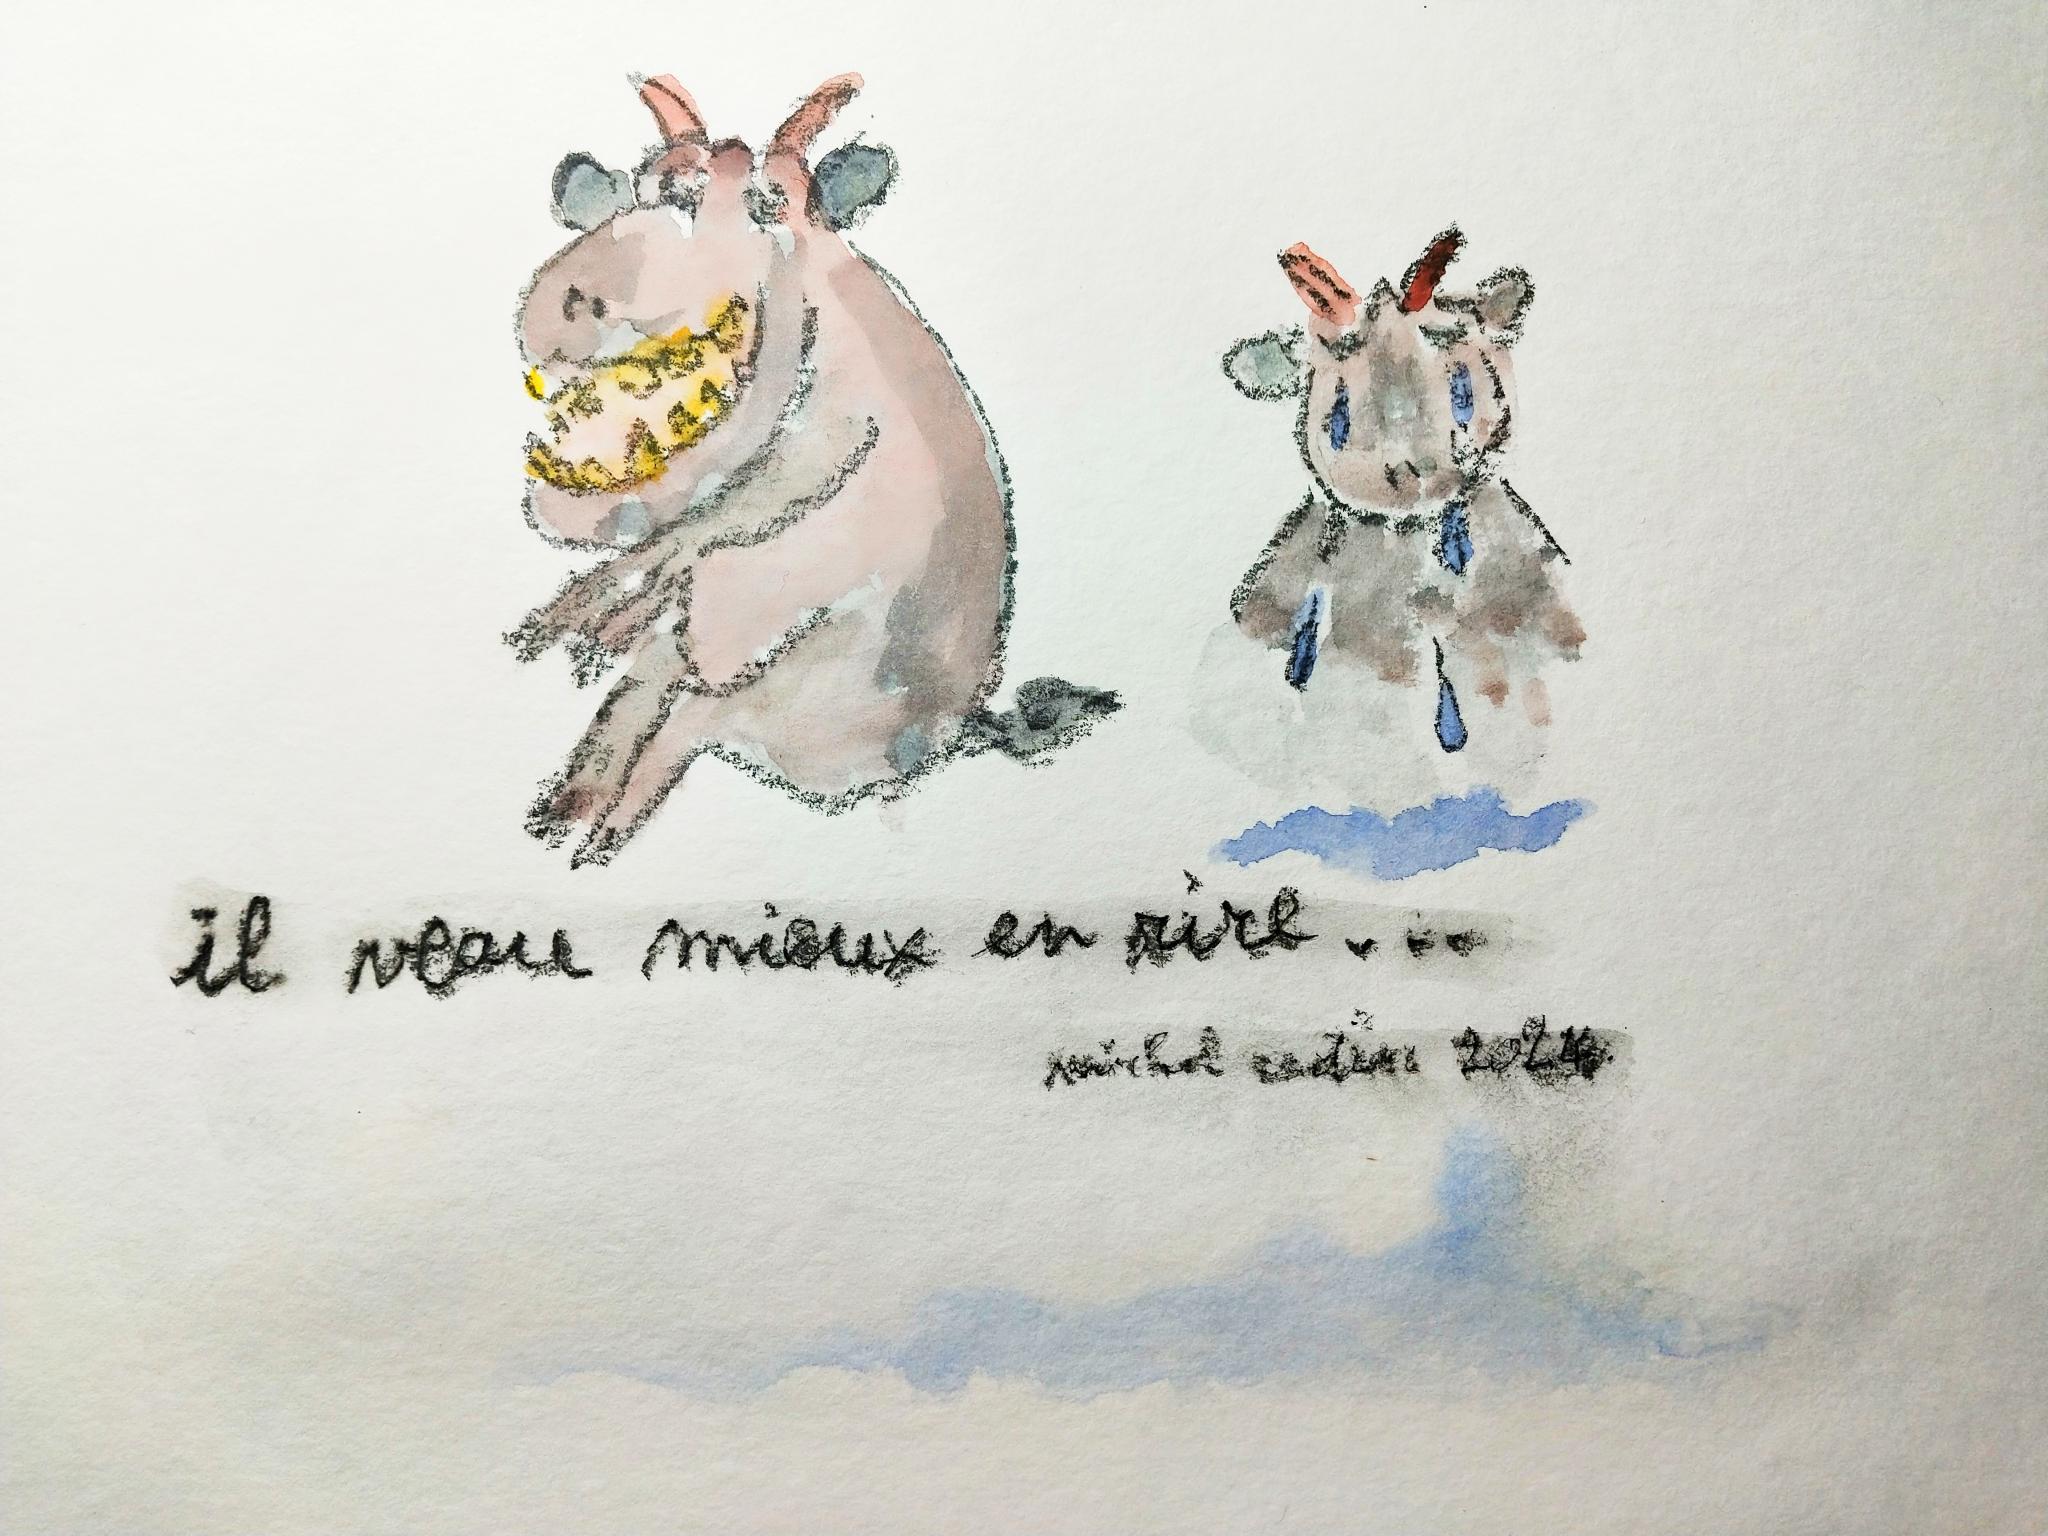 il veau mieux en rire...
michel 2024